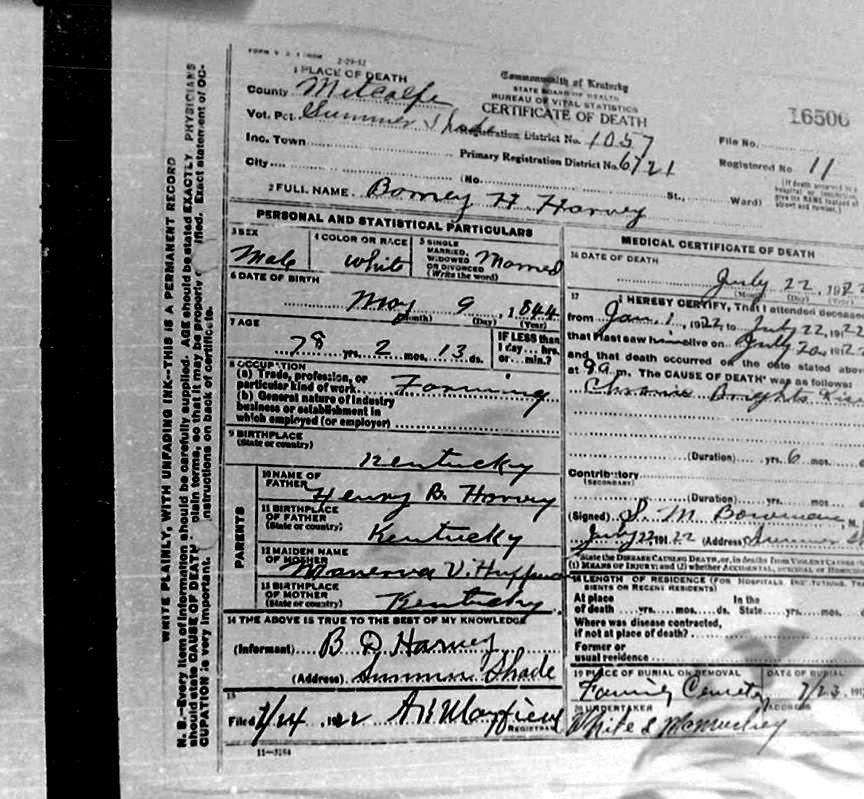 FORM V. S. 2-29-52
1 PLACE OF DEATH
County Metcalfe
Vot. Pct. Summer Shade
Inc. Town
City
Commonwealth of Kentucky
STATE BOARD OF HEALTH
BUREAU OF VITAL STATISTICS
CERTIFICATE OF DEATH
Registration District No. 1057
Primary Registration District No. 6721
(No. St., Ward)
16500
File No.
Registered No. 11
2 FULL NAME H Harvey
PERSONAL AND STATISTICAL PARTICULARS
3 SEX
Male
4 COLOR OR RACE
White
5 SINGLE
MARRIED,
WIDOWED
OR DIVORCED
(Write the word)
Married
6 DATE OF BIRTH
May 9, 1844
(Month) (Day) (Year)
7 AGE
78 yrs. 2 mos. 13 ds.
IF LESS than
1 day.... hrs.
or.... min.?
8 OCCUPATION
(a) Trade, profession, or
particular kind of work Farming
(b) General nature of industry
business or establishment in
which employed (or employer)
9 BIRTHPLACE
(State or country)
Kentucky
PARENTS
10 NAME OF
FATHER Henry B. Harvey
11 BIRTHPLACE
OF FATHER
(State or country) Kentucky
12 MAIDEN NAME
OF MOTHER V. Huffman
13 BIRTHPLACE
OF MOTHER
(State or country) Kentucky
14 THE ABOVE IS TRUE TO THE BEST OF MY KNOWLEDGE
(Informant) B D Harvey
(Address) Summer Shade
15
Filed 7/24, 1922 Mayfield
REGISTRAR
11-3184
MEDICAL CERTIFICATE OF DEATH
16 DATE OF DEATH
July 22, 192
(Month) (Day) (Year)
17 I HEREBY CERTIFY, That I attended deceased
from Jan. 1, 1922 to July 22, 1922
that I last saw him alive on July 20, 192
and that death occurred on the date stated above
at 9 a m. The CAUSE OF DEATH was as follows:
Chronic Brights
(Duration) yrs. 6 mos.
Contributory
(SECONDARY)
(Duration) yrs. mos.
(Signed) S. M. Bowman M.
July 22, 1922 (Address) Summer
*State the DISEASE CAUSING DEATH, or, in deaths from VIOLENT CAUSES
(1) MEANS OF INJURY; and (2) whether ACCIDENTAL, SUICIDAL or
18 LENGTH OF RESIDENCE (FOR HOSPITALS, INSTITUTIONS, TRANSIENTS OR RECENT RESIDENTS)
At place In the
of death yrs. mos. ds. State yrs. mos.
Where was disease contracted,
if not at place of death?
Former or
usual residence
19 PLACE OF BURIAL OR REMOVAL
Family Cemetery
DATE OF BURIAL
7/23, 192
20 UNDERTAKER
ADDRESS
WRITE PLAINLY, WITH UNFADING INK--THIS IS A PERMANENT RECORD
N. B.--Every item of information should be carefully supplied. AGE should be stated EXACTLY. PHYSICIANS
should state CAUSE OF DEATH plain terms, so that it may be properly ified. Exact statement of OC-
CUPATION is very important. nstructions on back of certificate.